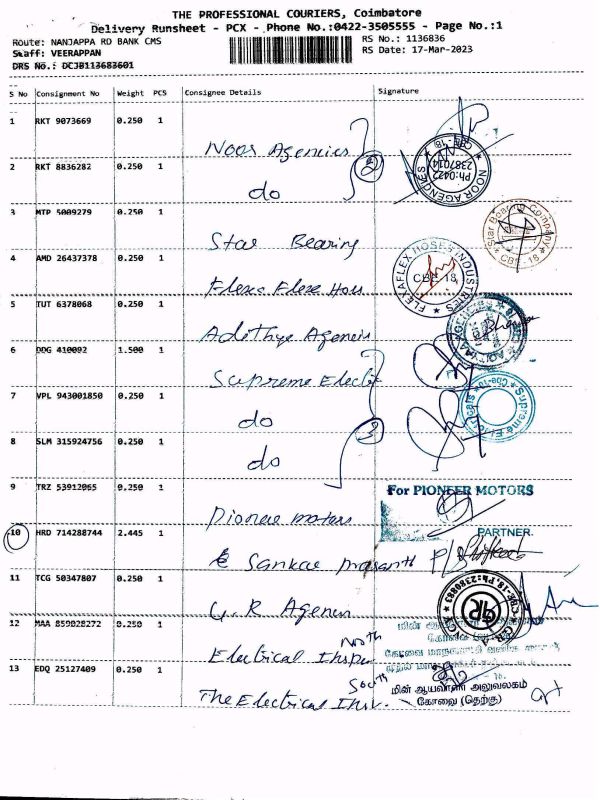 THE PROFESSIONAL COURIERS, Coimbatore
Delivery Runsheet - PCX - Phone No.:0422-3505555 - Page No.:1
Route: NANJAPPA RD BANK CMS
RS No.: 1136836
Staff: VEERAPPAN
RS Date: 17-Mar-2023
DRS No.: DCJB113683601
S No Consignment No Weight PCS Consignee Details Signature
1 RKT 9073669 0.250 1
Noor Agencies
2 RKT 8836282 0.250 1
do
2
NOOR AGENCIES Ph:0422 2387014 CBE-18
3 MTP 5009279 0.250 1
Star Bearing
Star Bearing Company CBE-18
4 AMD 26437378 0.250 1
Flexo Flexe Hou
FLEXAFLEX HOSES INDUSTRIES CBE-18
5 TUT 6378068 0.250 1
Adithya Agencies
6 DDG 410092 1.500 1
Supreme Elect
7 VPL 943001850 0.250 1
do
Supreme Electricals Cbe-18
8 SLM 315924756 0.250 1
do
3
9 TRZ 53912065 0.250 1
For PIONEER MOTORS
Pioneer motors
PARTNER.
10 HRD 714288744 2.445 1
Sankar prasanth
11 TCG 50347807 0.250 1
G.R Agencies
GR CBE-18. Ph:2380883
12 MAA 859028272 0.250 1
Electrical Inspe North
13 EDQ 25127409 0.250 1
The Electrical Ins. South
மின் ஆய்வாளர் அலுவலகம்
கோவை (தெற்கு)